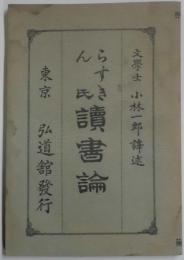 文學士 小林一郎譯述
らすきん氏讀書論
東京 弘道舘發行